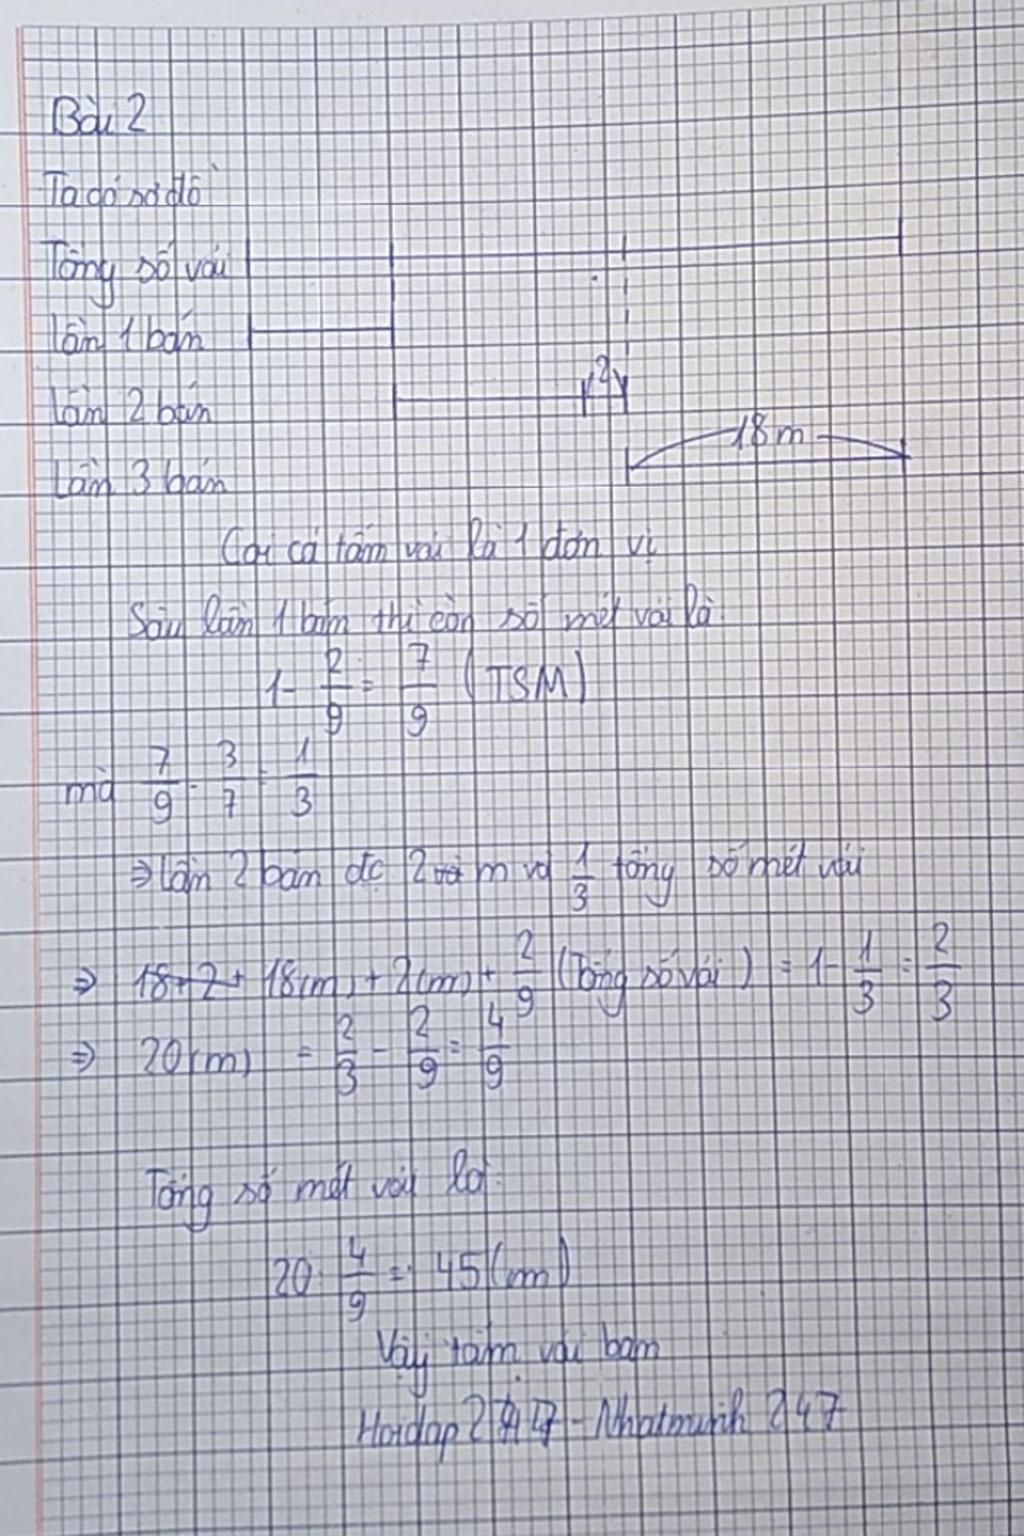 Bài 2
Ta có sơ đồ
Tổng số vải
lần 1 bán
lần 2 bán
2
18 m
Lần 3 bán
Coi cả tấm vải là 1 đơn vị
Sau lần 1 bán thì còn số mét vải là
1 - 2/9 = 7/9 (TSM)
mà 7/9 . 3/7 = 1/3
⇒ lần 2 bán đc 2 m và 1/3 tổng số mét vải
⇒ 18+2+ 18(m) + 2(m) + 2/9 (Tổng số vải) = 1 - 1/3 = 2/3
⇒ 20(m) = 2/3 - 2/9 = 4/9
Tổng số mét vải là:
20 : 4/9 = 45(m)
Vậy tấm vải
Hoidap247 - Nhatminh247